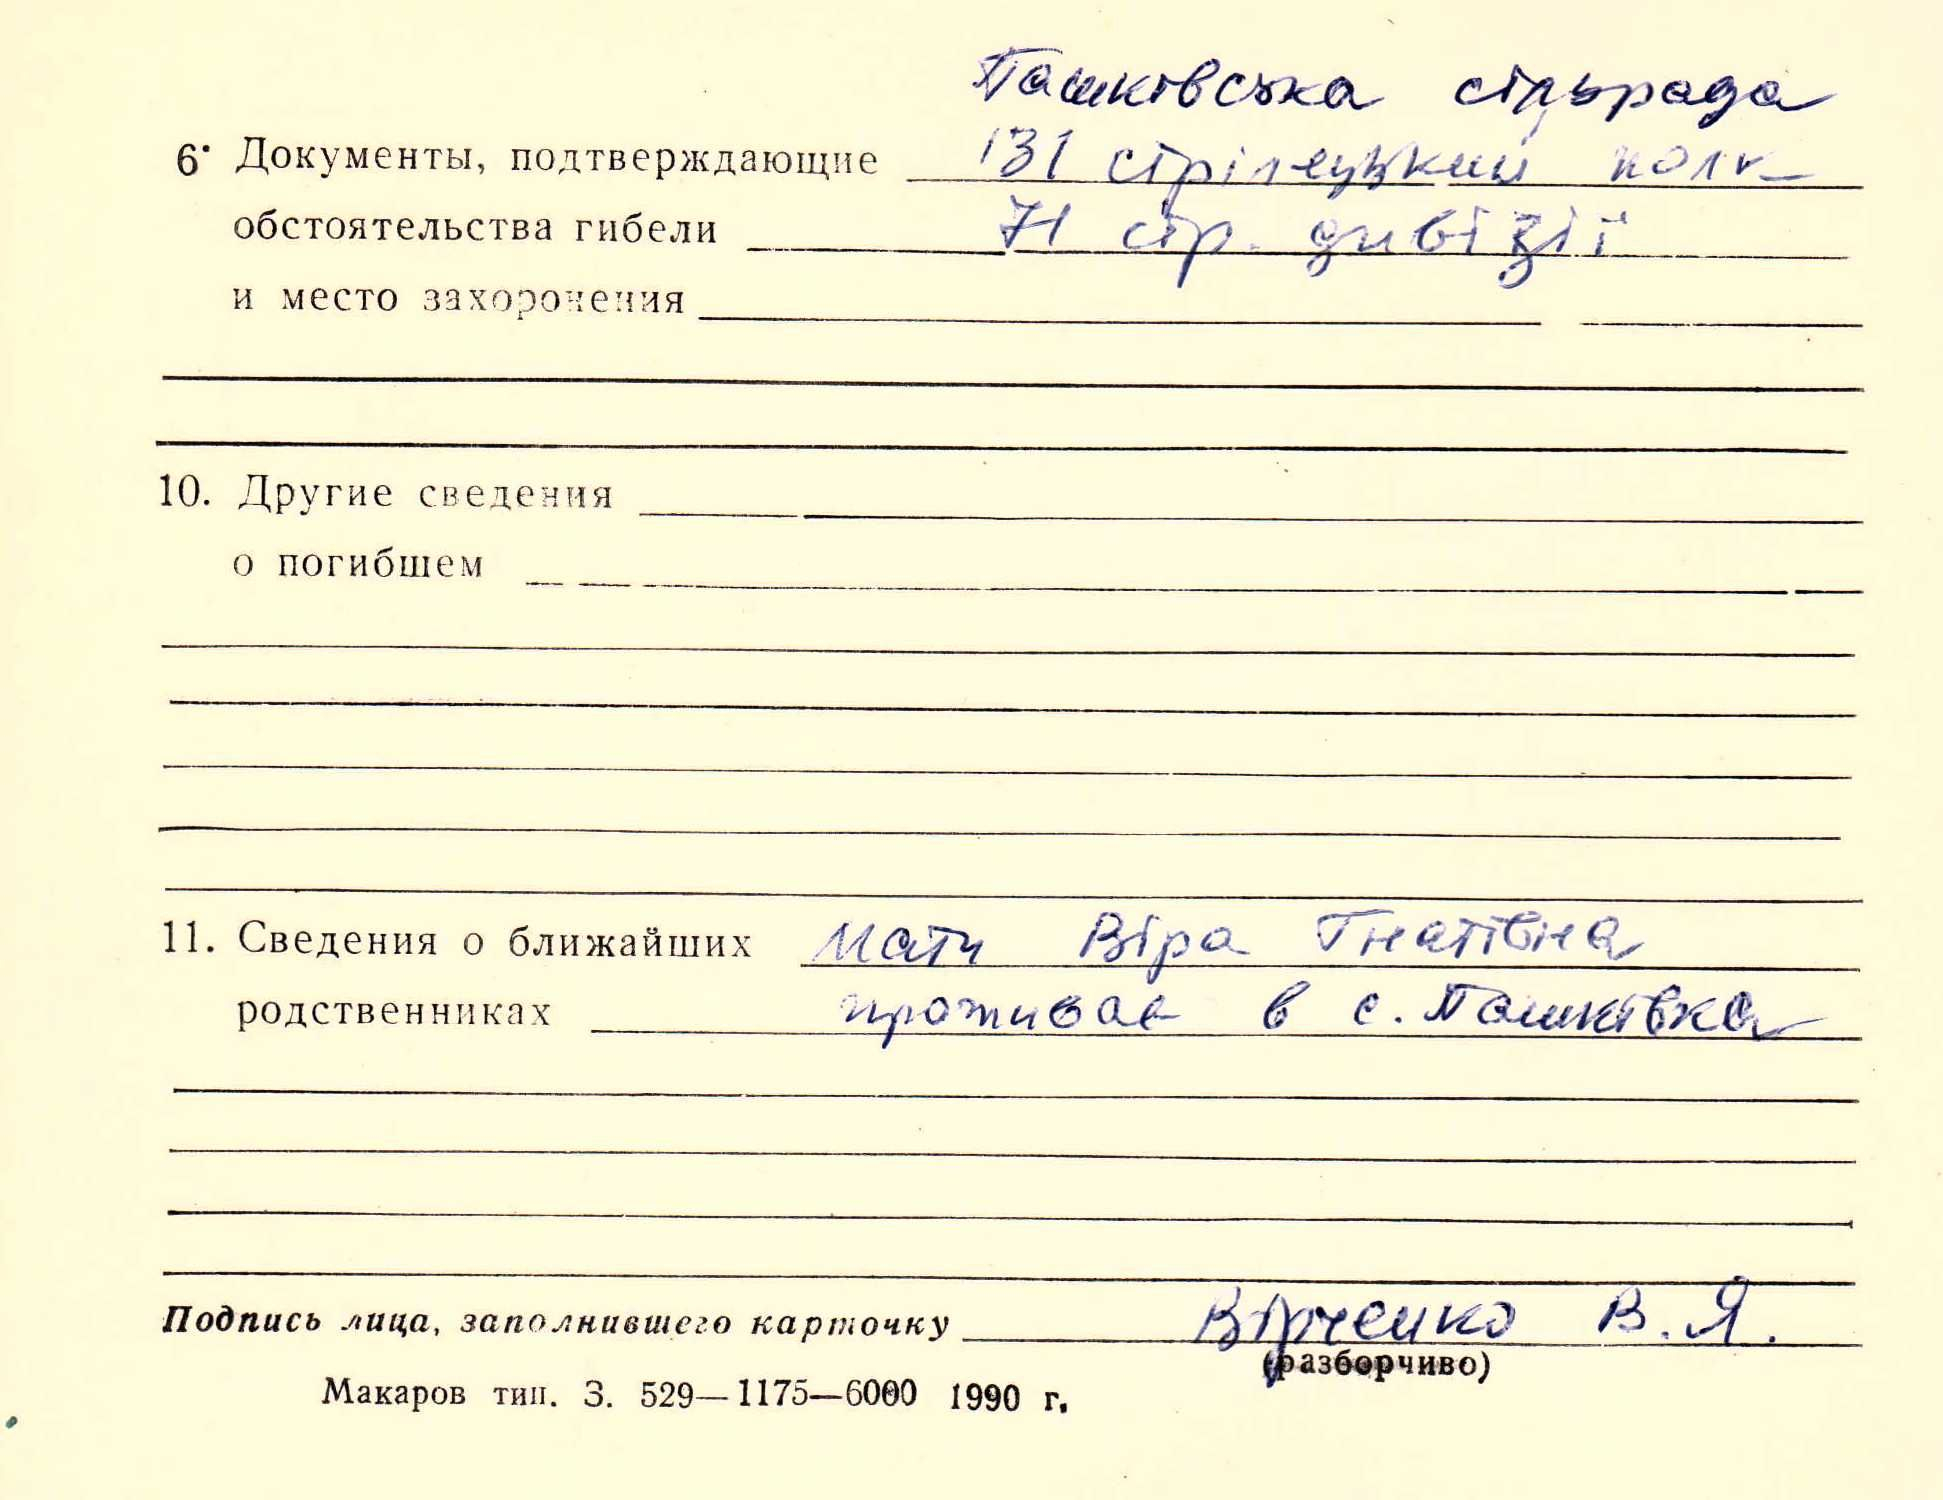 Пашківська сільрада
6. Документы, подтверждающие 131 стрілецький полк
обстоятельства гибели 71 стр. дивізії
и место захоронения
10. Другие сведения
о погибшем
11. Сведения о ближайших Мати Віра Гнатівна
родственниках проживає в с. Пашківка
Подпись лица, заполнившего карточку Вірченко В. Я.
(разборчиво)
Макаров тип. З. 529—1175—6000 1990 г.